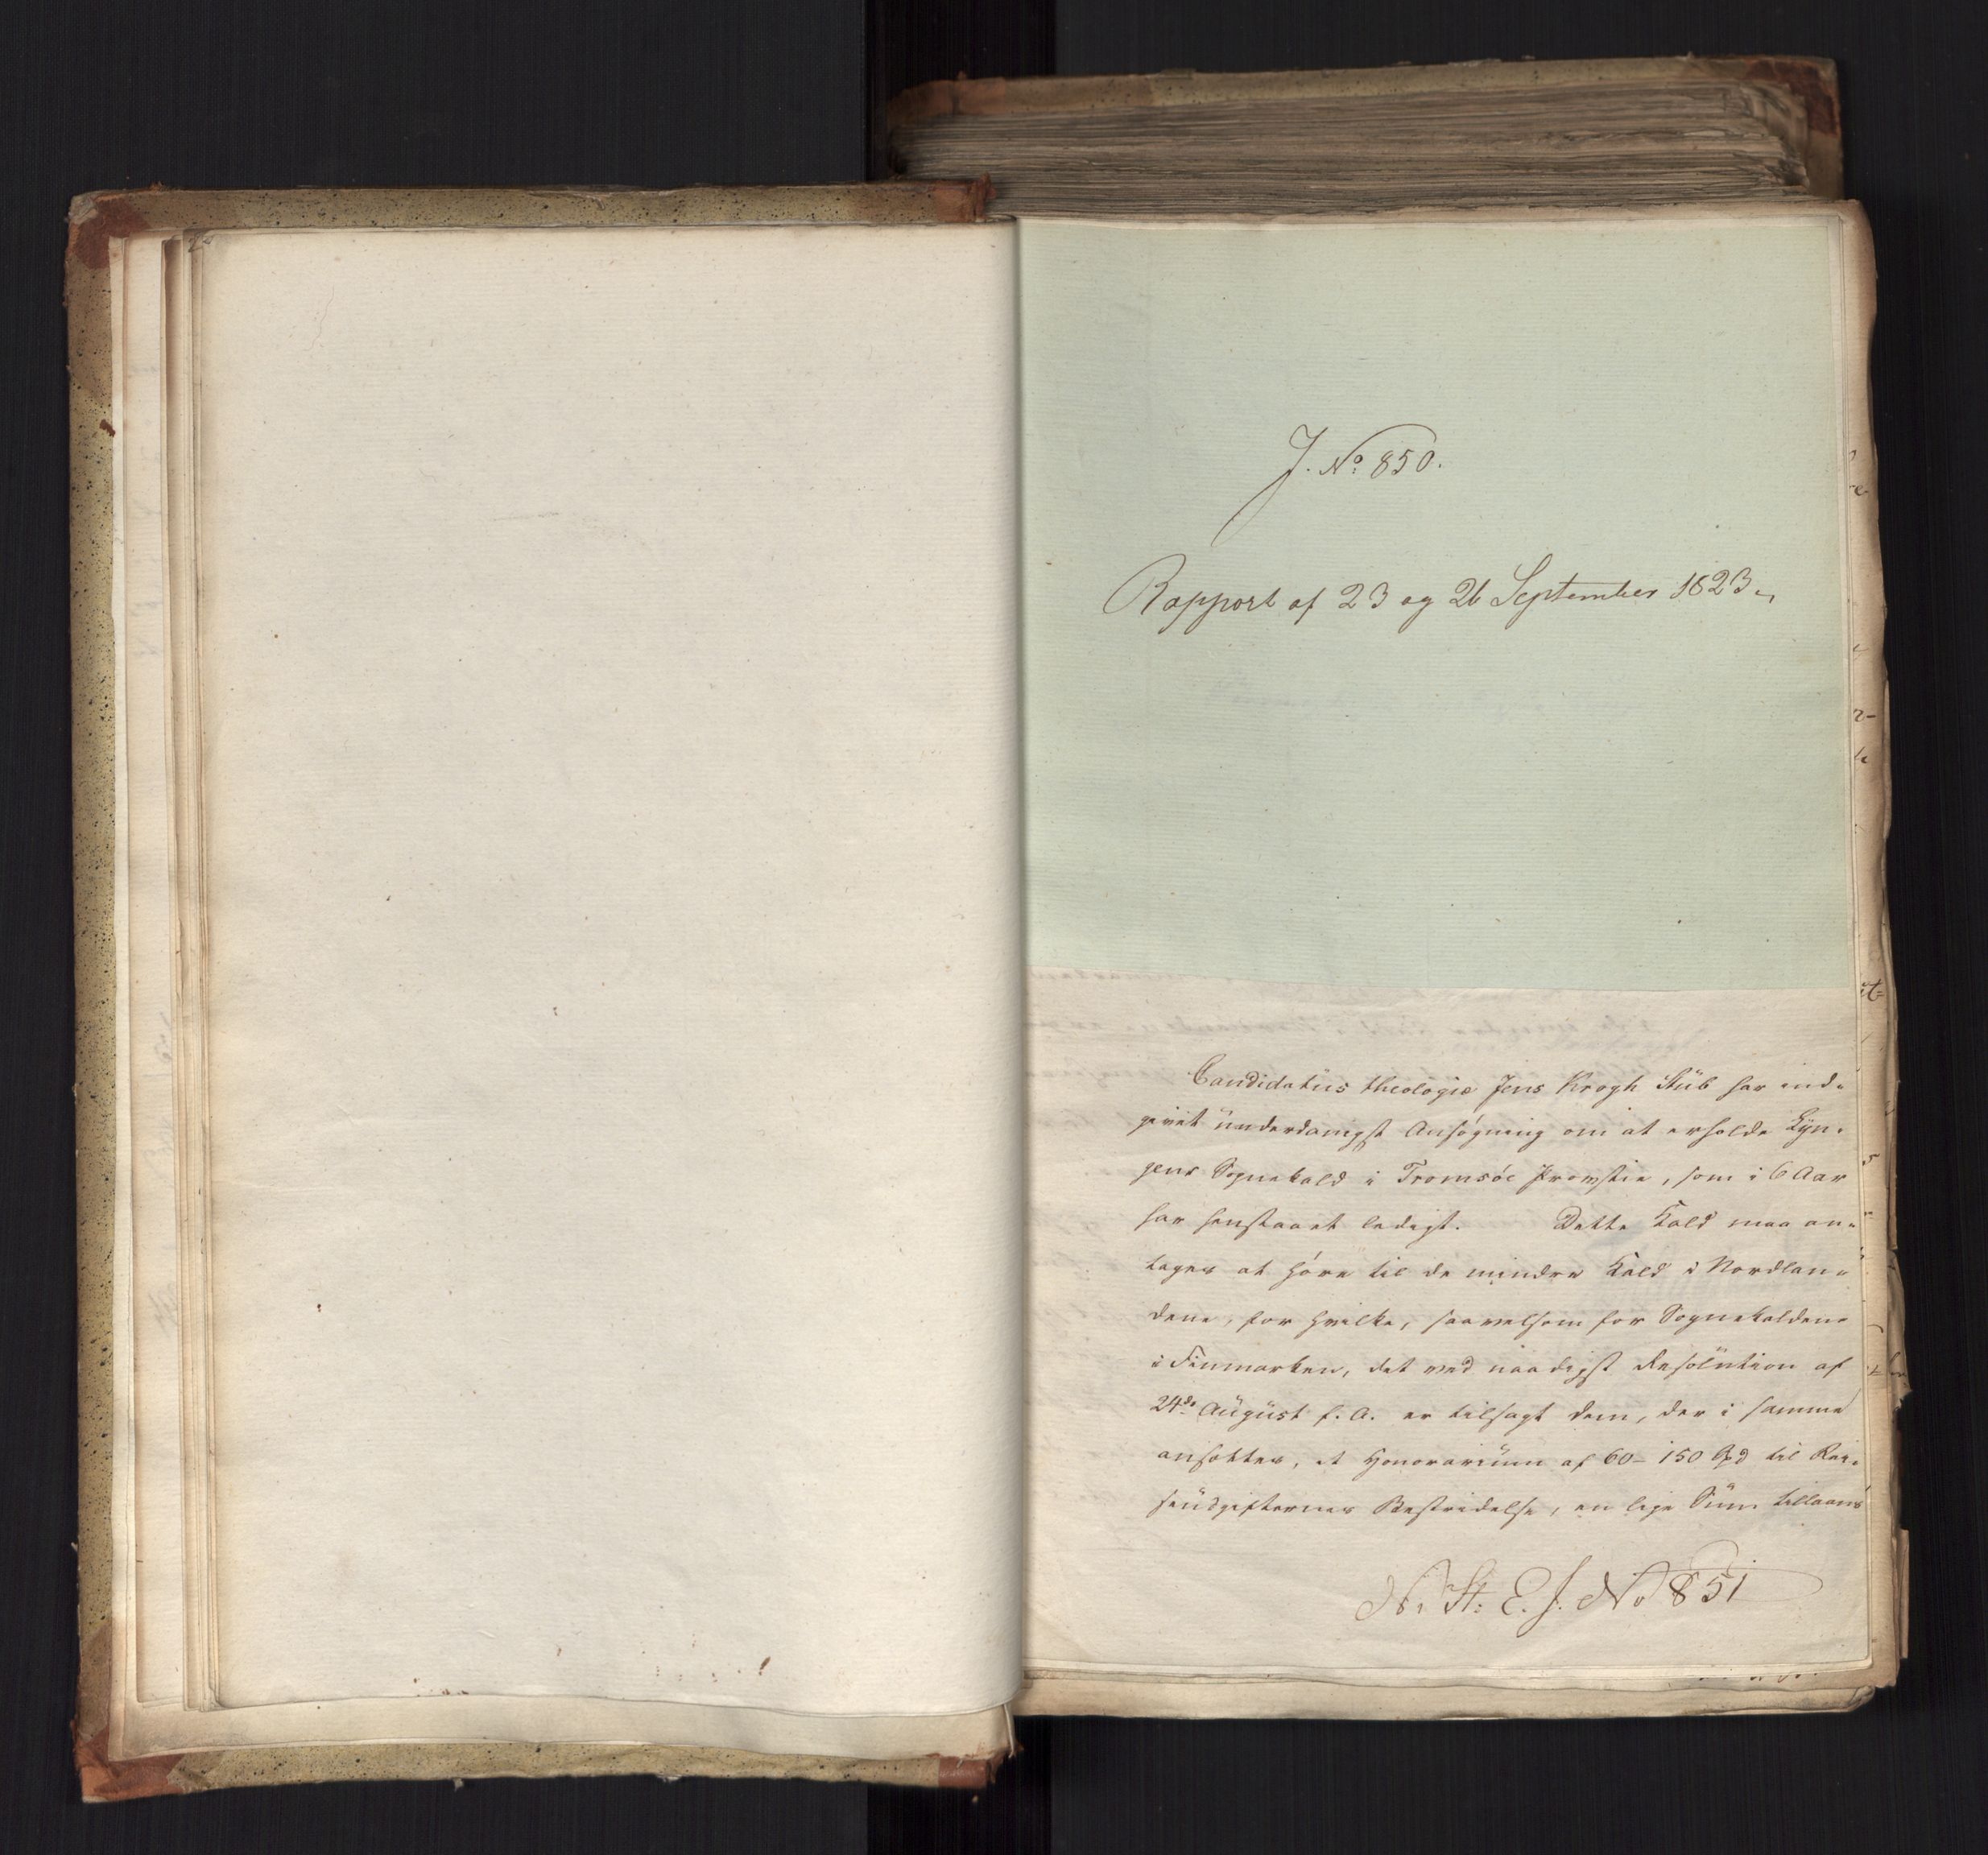 J. No 850.
Rapport af 23 og 26 September 1823
Candidatus theologiæ Jens Krogh Stub har ind-
givet underdanigst Ansøgning om at erholde Lyn-
gens Sognekald i Tromsöe Provstie, som i 6 Aar
har henstaaet ledigt. Dette Kald maa an-
tages at høre til de mindre Kald i Nordlan-
dene, for hvilke, saavelsom for Sognekaldene
i Finmarken, det ved naadigst Resolution af
24de August f. A. er tilsagt dem, der i samme
ansættes, et Honorarium af 60 - 150 Spd til Rei-
seudgifternes Bestridelse, en lige Sum tillaans
N. St: E. J. No 851